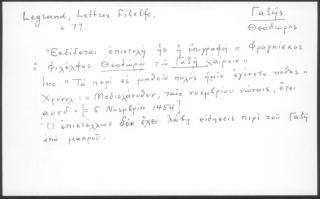 Legrand, Lettres Filelfe.
σ. 77
Γαζῆς
Θεόδωρος
Ἐκδίδεται ἐπιστολὴ ἧς ἡ ἐπιγραφὴ "Φραγκίσκος
ὁ Φιλέλφος Θεοδώρῳ τῷ Γαζῇ χαίρειν"
Inc. "Τὰ περὶ σὲ μαθεῖν πολὺς ἡμῖν ἐγένετο πόθος"
Χρονολ.: "Μεδιολάνοθεν, ταῖς νοεμβρίου νώναις, ἔτει
αυνδ' [5 Νοεμβρίου 1454]
Ὁ ἐπιστέλλων δὲν ἔχει λάβῃ εἰδήσεις περὶ τοῦ Γαζῆ
ἀπὸ μακροῦ.